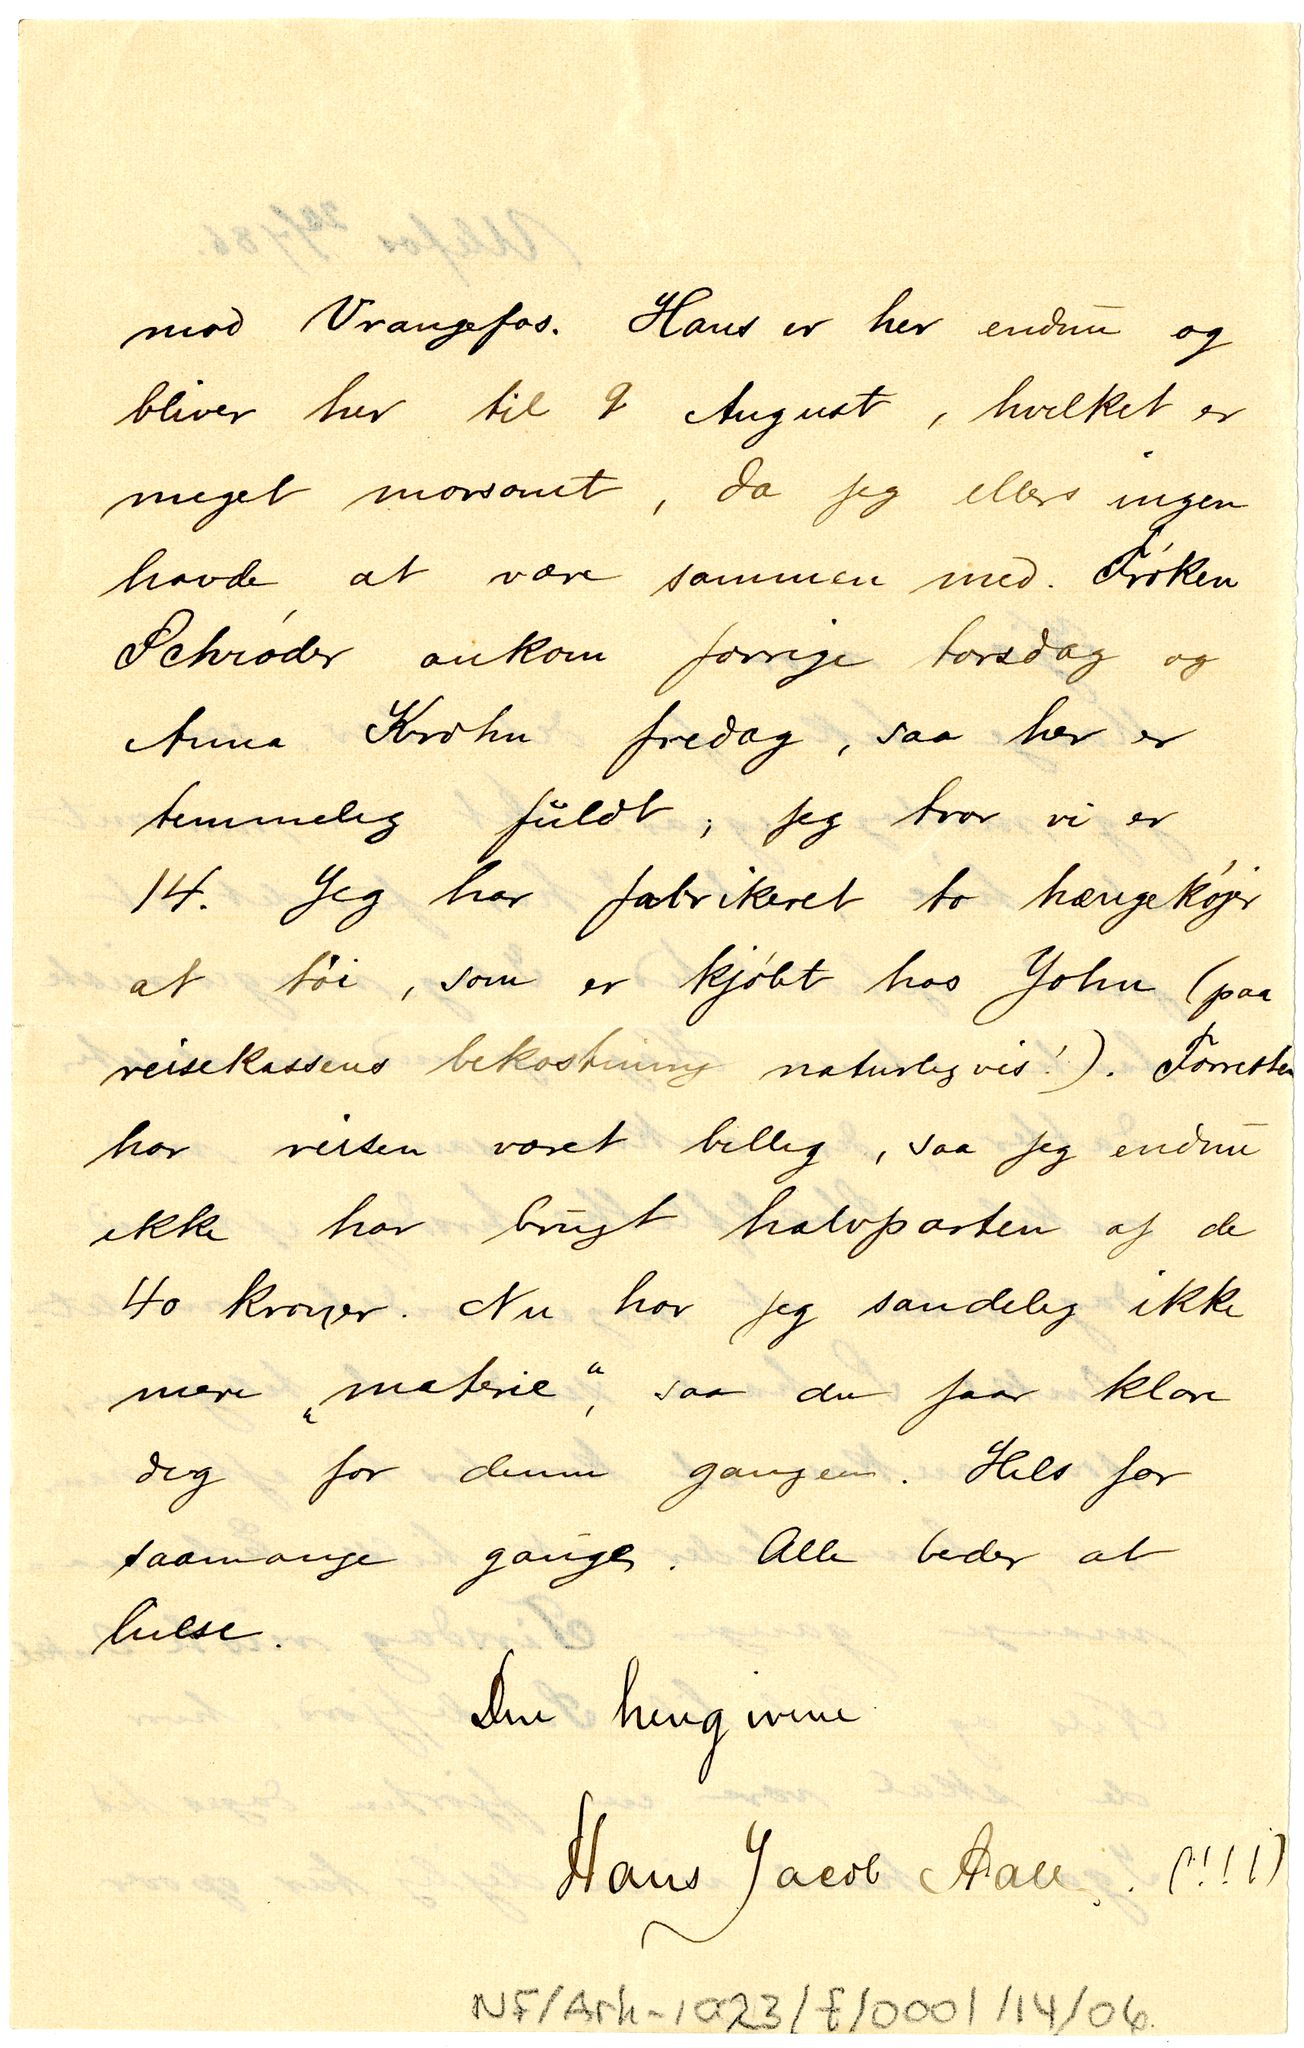 mod Vrangefos. Hans er her endnu og
bliver her til 9 August, hvilket er
meget morsomt, da jeg ellers ingen
havde at være sammen med. Frøken
Schrøder ankom forrige torsdag og
Anna Krohn fredag, saa her er
temmelig fuldt; jeg tror vi er
14. Jeg har fabrikeret to hængekøjer
af tøi, som er kjøbt hos John (paa
reisekassens bekostning naturligvis!). Forresten
har reisen været billig, saa jeg endnu
ikke har brugt halvparten af de
40 kroner. Nu har jeg sandelig ikke
mere „materie“, saa du faar klare
dig for denne gangen. Hils far
saamange gange. Alle beder at
hilse.
Din hengivne
Hans Jacob Aall. (!!!!)
NF/Ark-1023/E/0001/14/06.